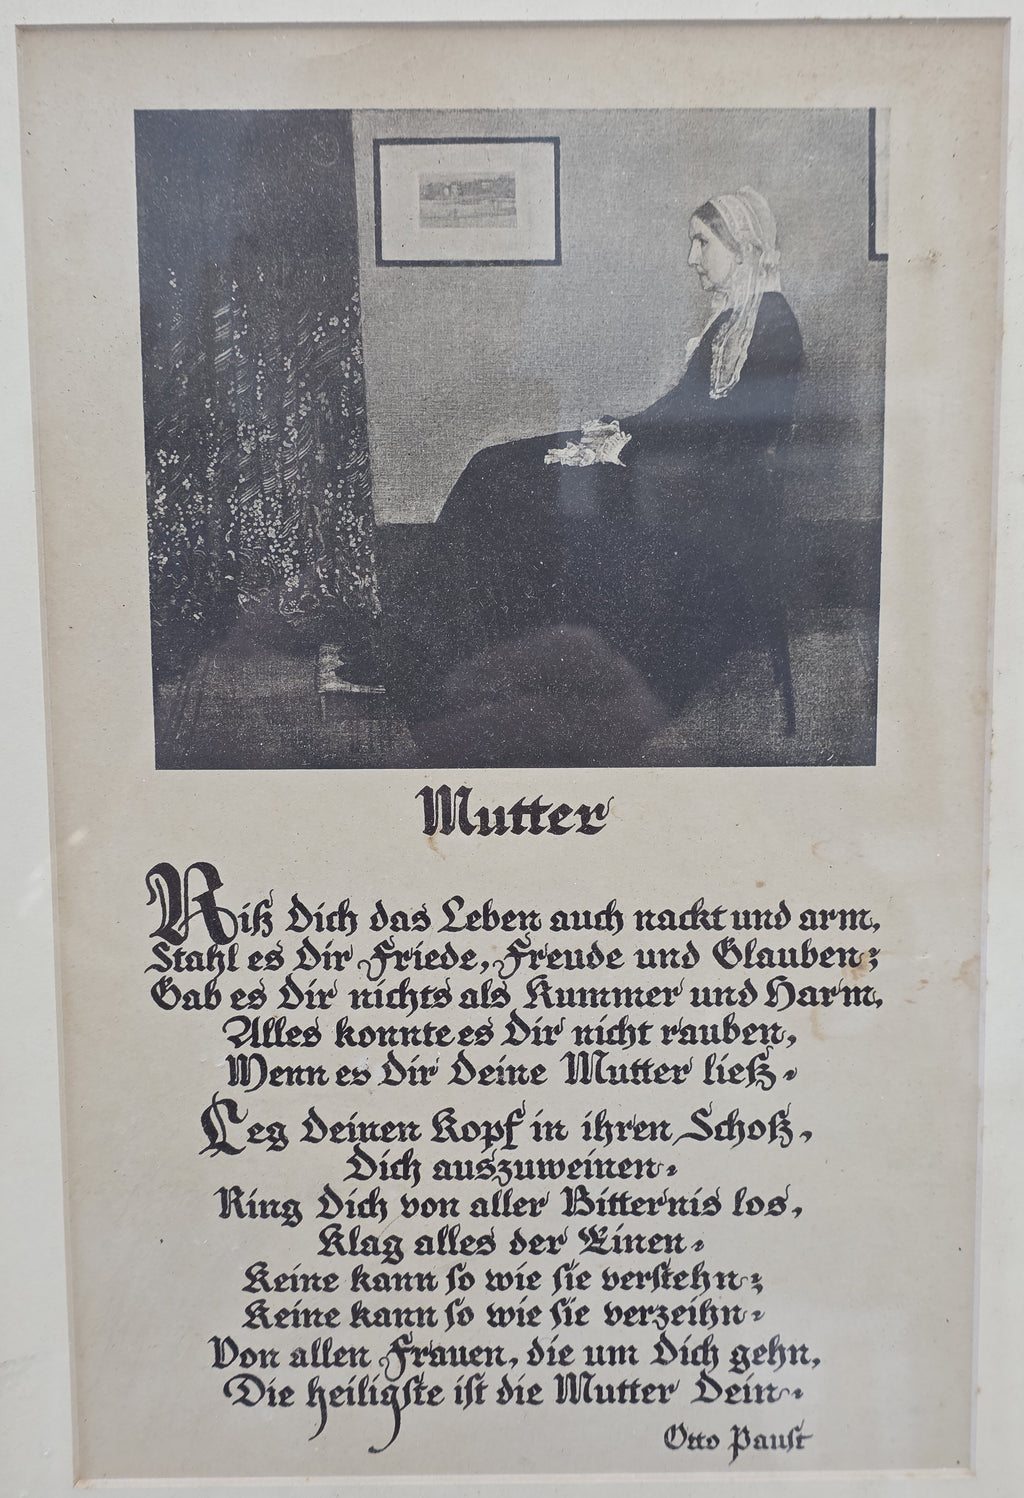 Mutter
Riß Dich das Leben auch nackt und arm,
Stahl es Dir Friede, Freude und Glauben;
Gab es Dir nichts als Kummer und Harm,
Alles konnte es Dir nicht rauben,
Wenn es Dir Deine Mutter ließ.
Leg Deinen Kopf in ihren Schoß,
Dich auszuweinen.
Ring Dich von aller Bitternis los,
Klag alles der Einen.
Keine kann so wie sie verstehn;
Keine kann so wie sie verzeihn.
Von allen Frauen, die um Dich gehn,
Die heiligste ist die Mutter Dein.
Otto Paust